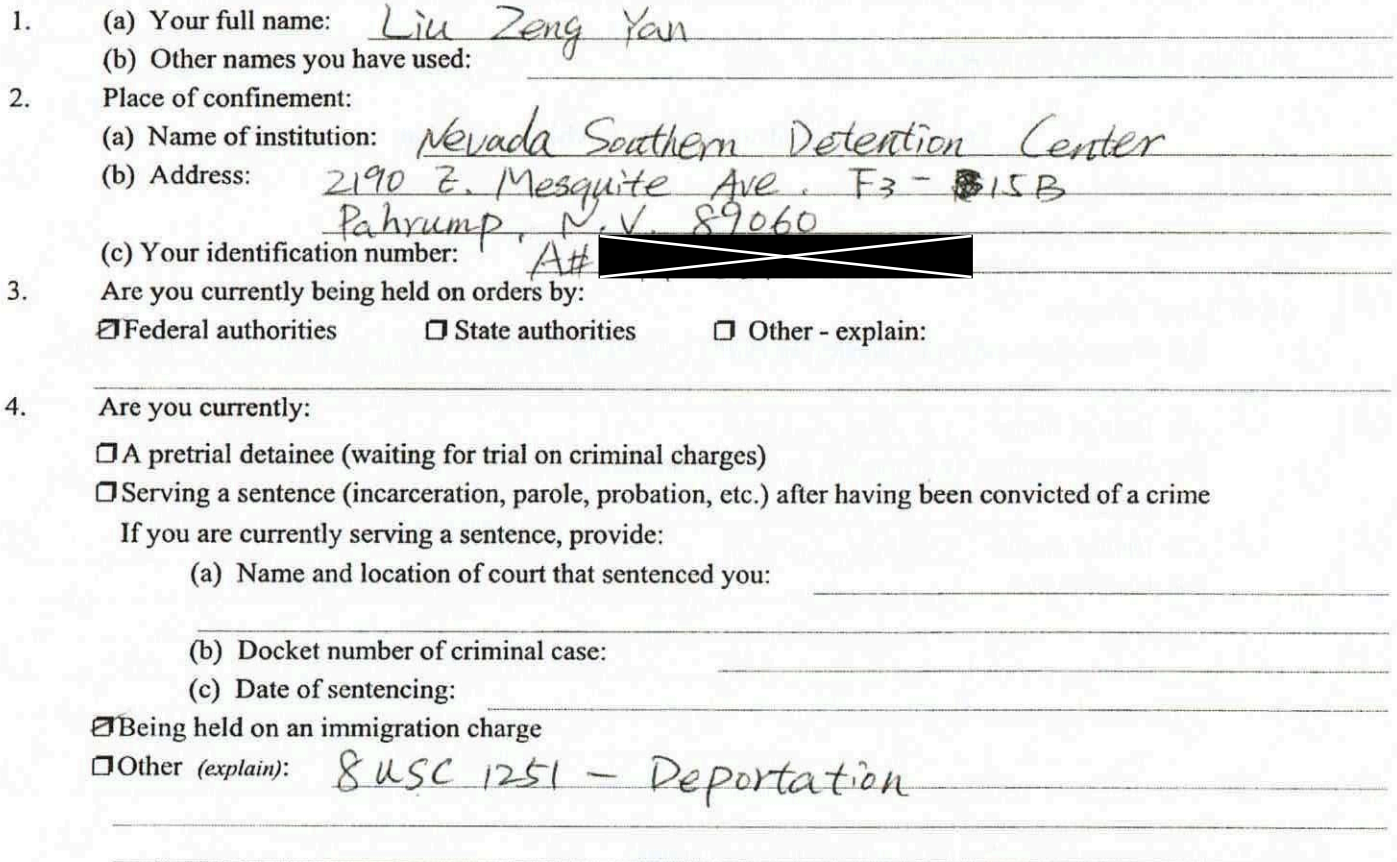 1. (a) Your full name: Liu Zeng Yan
(b) Other names you have used:
2. Place of confinement:
(a) Name of institution: Nevada Southern Detention Center
(b) Address: 2190 E. Mesquite Ave. F3 - 15B
Pahrump, N.V. 89060
(c) Your identification number: A#
3. Are you currently being held on orders by:
☑ Federal authorities ☐ State authorities ☐ Other - explain:
4. Are you currently:
☐ A pretrial detainee (waiting for trial on criminal charges)
☐ Serving a sentence (incarceration, parole, probation, etc.) after having been convicted of a crime
If you are currently serving a sentence, provide:
(a) Name and location of court that sentenced you:
(b) Docket number of criminal case:
(c) Date of sentencing:
☑ Being held on an immigration charge
☐ Other (explain): 8 USC 1251 - Deportation